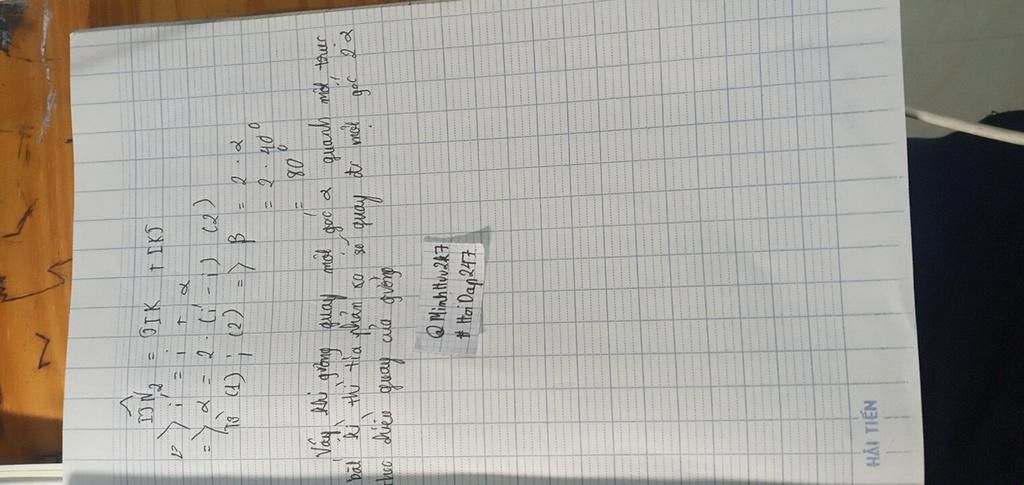 IJN₂ = JIK + IKJ
<=> i' = i + α
=> α = 2 . (i' - i) (2)
Từ (1) ; (2) => β = 2 . α
= 2 . 40⁰
= 80⁰
Vậy khi gương quay một góc α quanh một trục
bất kì thì tia phản xạ sẽ quay đi một góc 2α
theo chiều quay của gương
@MinhHuu2k7
#HoiDap247
HẢI TIẾN